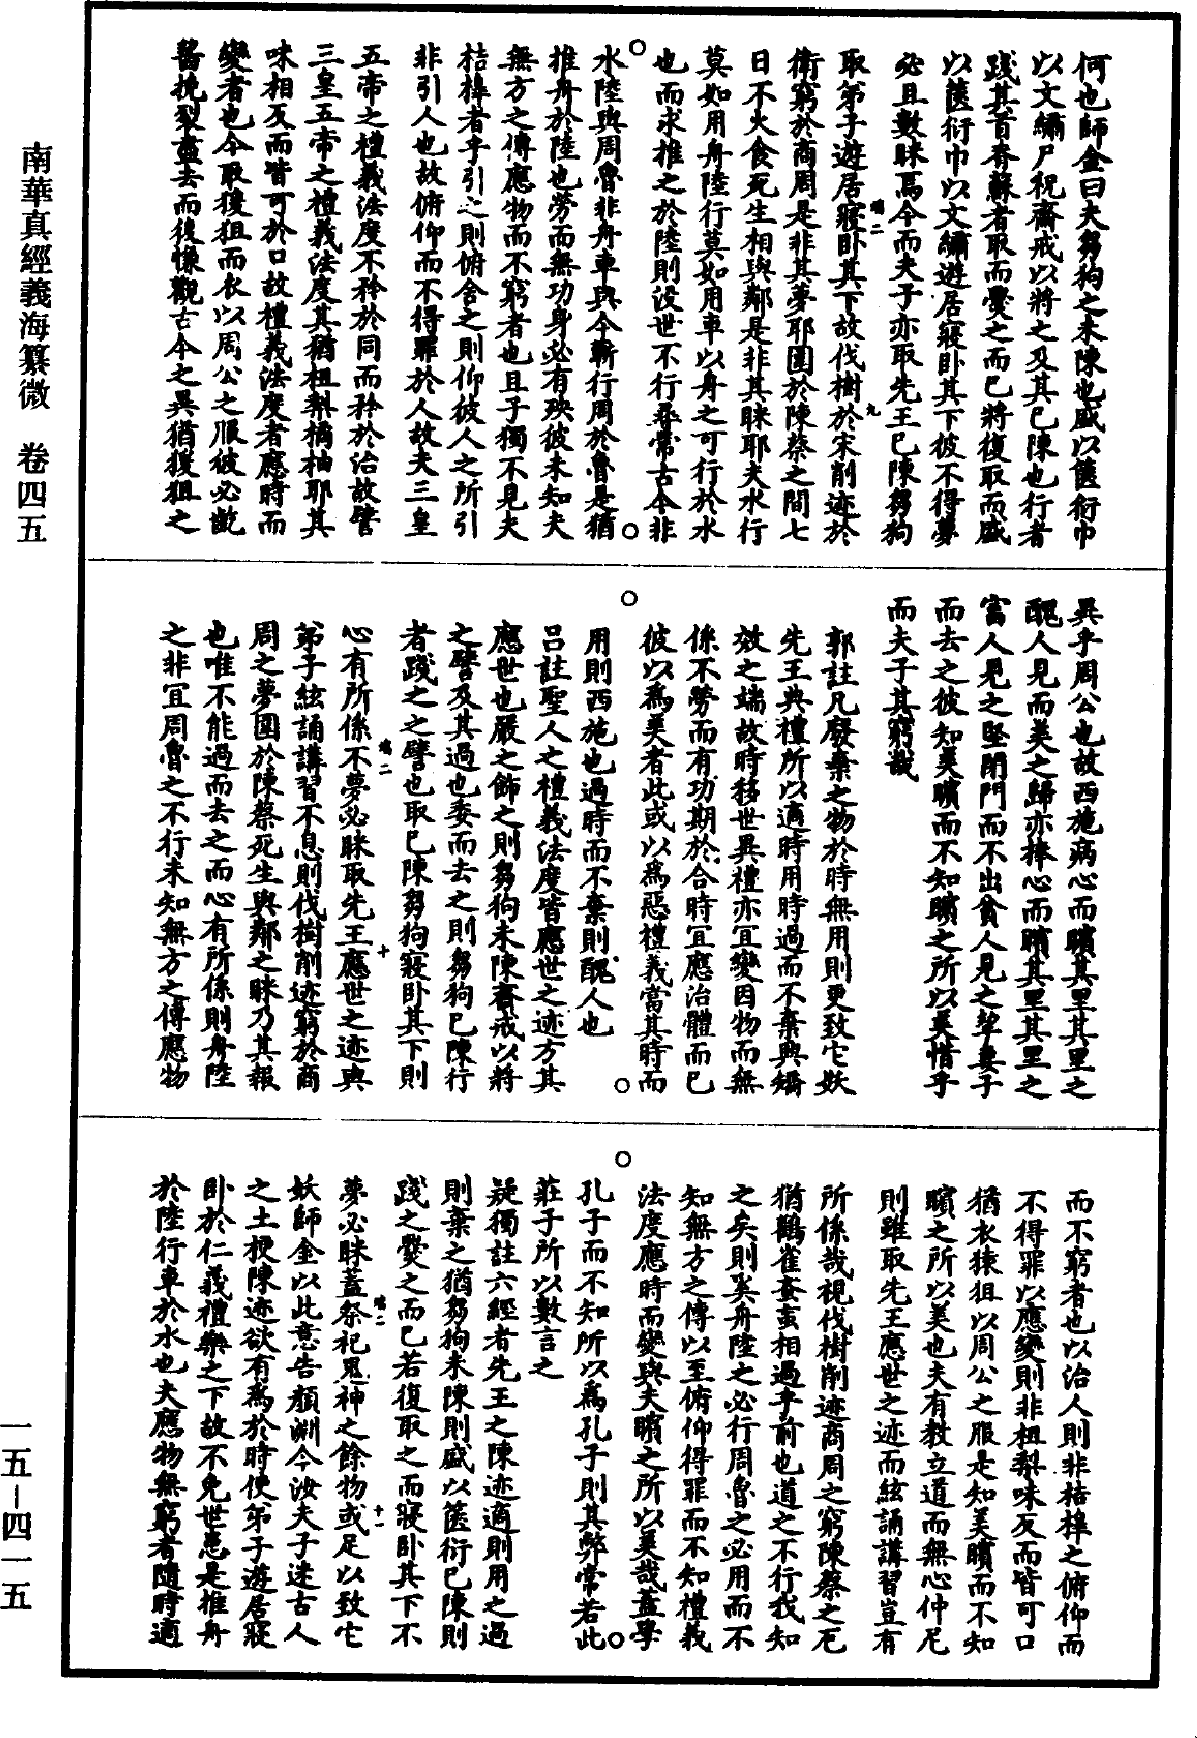 南華真經義海纂微　卷四五
何也師金曰夫芻狗之未陳也盛以篋衍巾
以文繡尸祝齋戒以將之及其已陳也行者
踐其首脊蘇者取而爨之而已將復取而盛
以篋衍巾以文繡遊居寢卧其下彼不得夢
必且數眯焉今而夫子亦取先王已陳芻狗
取弟子遊居寢卧其下故伐樹於宋削迹於
衛窮於商周是非其夢耶圍於陳蔡之間七
日不火食死生相與鄰是非其眯耶夫水行
莫如用舟陸行莫如用車以舟之可行於水
也而求推之於陸則没世不行尋常古今非
水陸與周魯非舟車與今蘄行周於魯是猶
推舟於陸也勞而無功身必有殃彼未知夫
無方之傳應物而不窮者也且子獨不見夫
桔槔者乎引之則俯舍之則仰彼人之所引
非引人也故俯仰而不得罪於人故夫三皇
五帝之禮義法度不矜於同而矜於治故譬
三皇五帝之禮義法度其猶柤梨橘柚耶其
味相反而皆可於口故禮義法度者應時而
變者也今取猨狙而衣以周公之服彼必齕
齧挽裂盡去而後慊觀古今之異猶猨狙之
異乎周公也故西施病心而矉其里其里之
醜人見而美之歸亦捧心而矉其里其里之
富人見之堅閉門而不出貧人見之挈妻子
而去之彼知美矉而不知矉之所以美惜乎
而夫子其窮哉
郭註凡廢棄之物於時無用則更致它妖
先王典禮所以適時用時過而不棄與矯
效之端故時移世異禮亦宜變因物而無
係不勞而有功期於合時宜應治體而已
彼以為美者此或以為惡禮義當其時而
用則西施也過時而不棄則醜人也
呂註聖人之禮義法度皆應世之迹方其
應世也嚴之飾之則芻狗未陳齋戒以將
之譬及其過也委而去之則芻狗已陳行
者踐之之譬也取已陳芻狗寢卧其下則
心有所係不夢必眯取先王應世之迹與
弟子絃誦講習不息則伐樹削迹窮於商
周之夢圍於陳蔡死生與鄰之眯乃其報
也唯不能過而去之而心有所係則舟陸
之非宜周魯之不行未知無方之傳應物
而不窮者也以治人則非桔槔之俯仰而
不得罪以應變則非柤梨味反而皆可口
猶衣猿狙以周公之服走知美矉而不知
矉之所以美也夫有教立道而無心仲尼
則雖取先王應世之迹而絃誦講習豈有
所係哉視伐樹削迹商周之窮陳蔡之厄
猶鸛雀蚉䖟相過乎前也道之不行我知
之矣則奚舟陸之必行周魯之必用而不
知無方之傳以至俯仰得罪而不知禮義
法度應時而變與夫矉之所以美哉蓋學
孔子而不知所以為孔子則其弊常若此
莊子所以數言之
疑獨註六經者先王之陳迹適則用之過
則棄之猶芻狗未陳則盛以篋衍已陳則
踐之爨之而已若復取之而寢卧其下不
夢必眯蓋祭祀鬼神之餘物或足以致它
妖師金以此意告顏淵今汝夫子迷古人
之土梗陳迹欲有為於時使弟子遊居寢
卧於仁義禮樂之下故不免世患是推舟
於陸行車於水也夫應物無窮者隨時適
一五－四一五